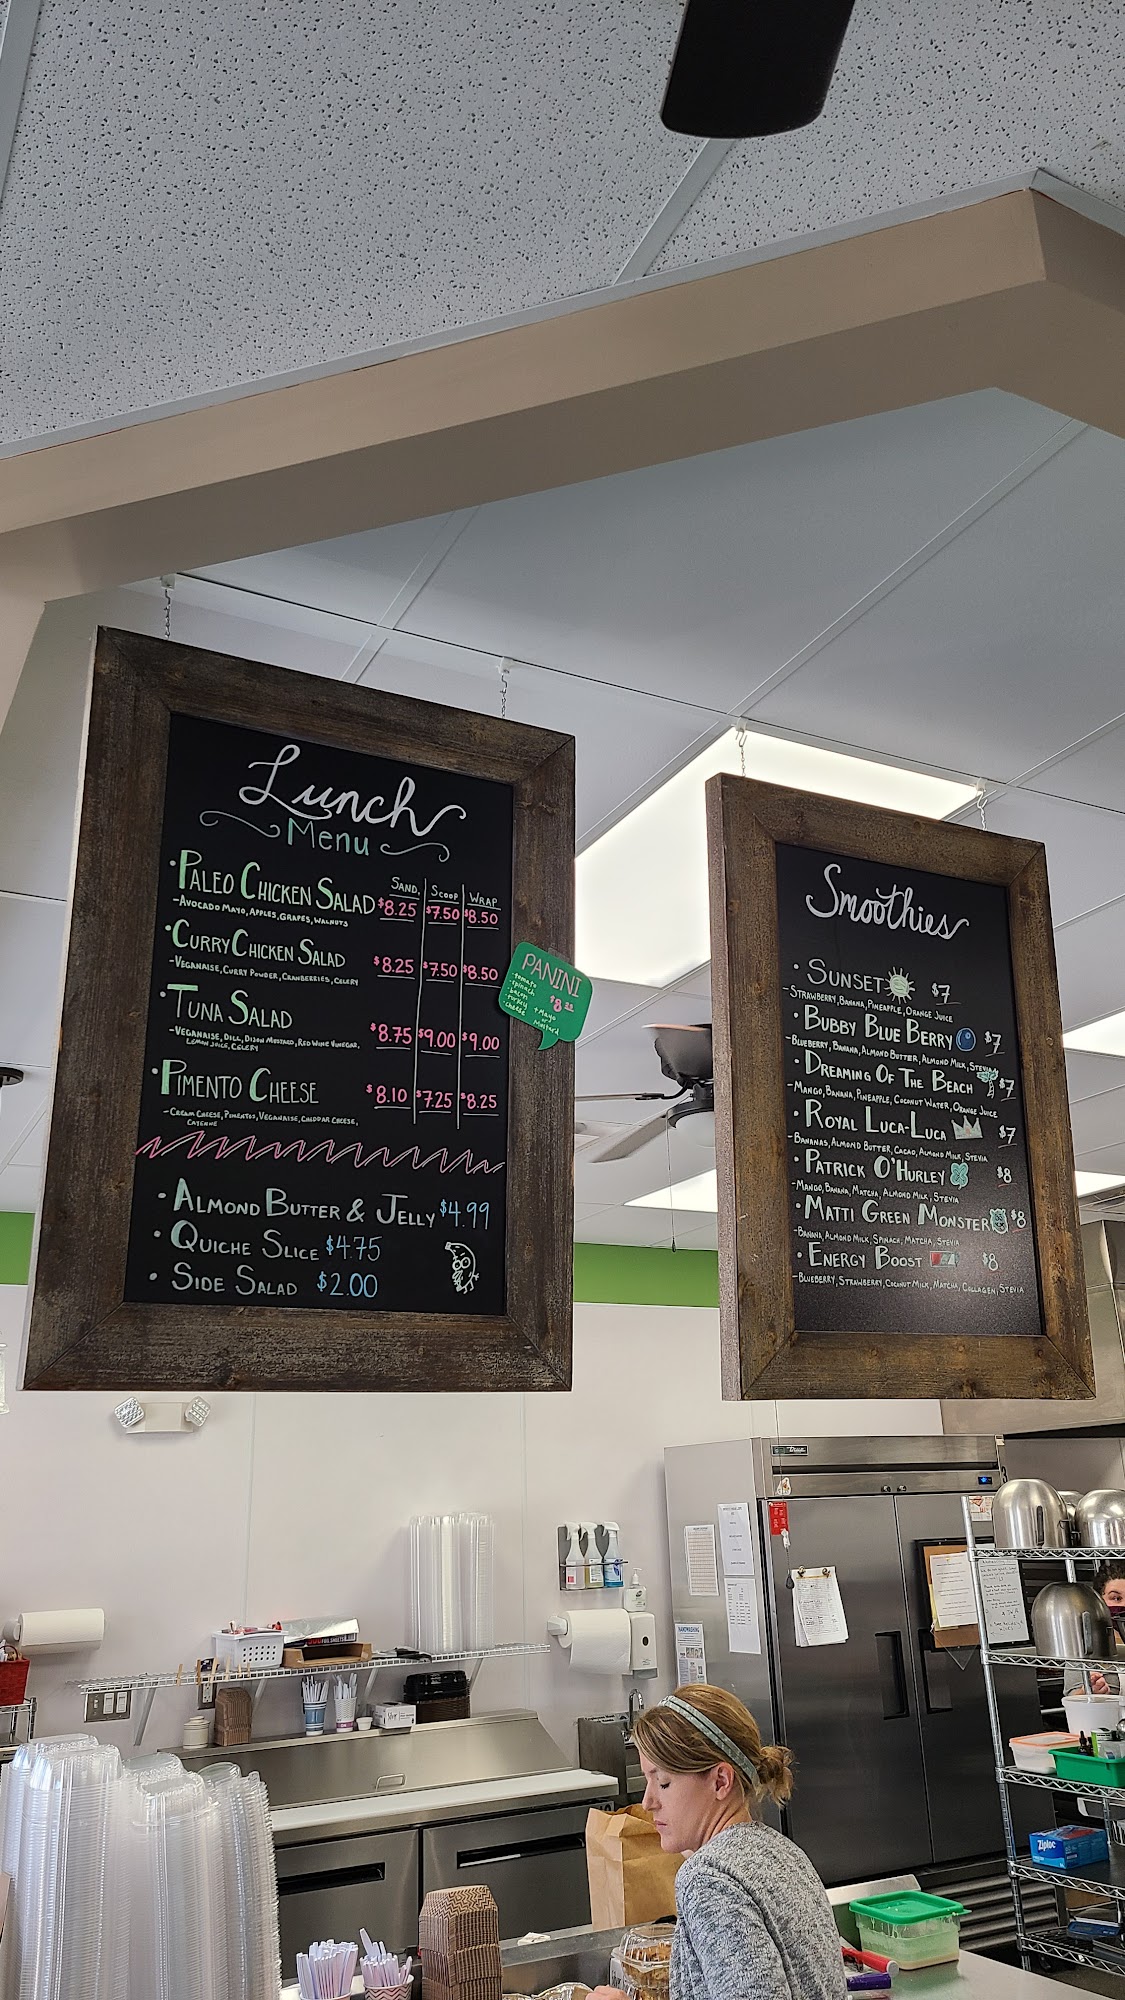 Lunch
Menu
SAND. SCOOP WRAP
•PALEO CHICKEN SALAD $8.25 $7.50 $8.50
-AVOCADO MAYO, APPLES, GRAPES, WALNUTS
•CURRY CHICKEN SALAD $8.25 $7.50 $8.50
-VEGANAISE, CURRY POWDER, CRANBERRIES, CELERY
•TUNA SALAD $8.75 $9.00 $9.00
-VEGANAISE, DILL, DIJON MUSTARD, RED WINE VINEGAR,
LEMON JUICE, CELERY
•PIMENTO CHEESE $8.10 $7.25 $8.25
-CREAM CHEESE, PIMENTOS, VEGANAISE, CHEDDAR CHEESE,
CAYENNE
•ALMOND BUTTER & JELLY $4.99
•QUICHE SLICE $4.75
•SIDE SALAD $2.00
PANINI
-tomato
-spinach
-bacon
-turkey
-cheese
+Mayo
or
Mustard
Smoothies
•SUNSET $7
-STRAWBERRY, BANANA, PINEAPPLE, ORANGE JUICE
•BUBBY BLUE BERRY $7
-BLUEBERRY, BANANA, ALMOND BUTTER, ALMOND MILK, STEVIA
•DREAMING OF THE BEACH $7
-MANGO, BANANA, PINEAPPLE, COCONUT WATER, ORANGE JUICE
•ROYAL LUCA-LUCA $7
-BANANAS, ALMOND BUTTER, CACAO, ALMOND MILK, STEVIA
•PATRICK O'HURLEY $8
-MANGO, BANANA, MATCHA, ALMOND MILK, STEVIA
•MATTI GREEN MONSTER $8
-BANANA, ALMOND MILK, SPINACH, MATCHA, STEVIA
•ENERGY BOOST $8
-BLUEBERRY, STRAWBERRY, COCONUT MILK, MATCHA, COLLAGEN, STEVIA
True
HANDWASHING
Ziploc